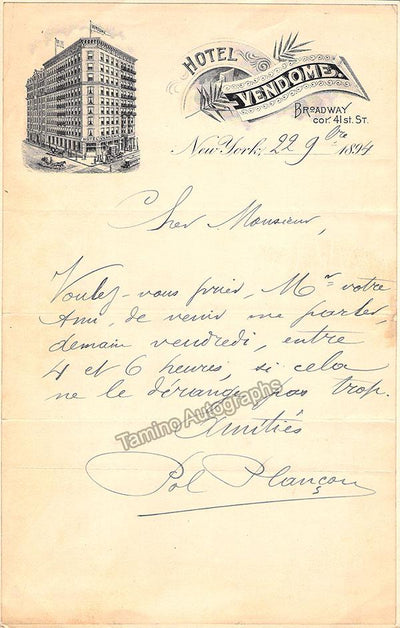 HOTEL
VENDOME.
BROADWAY
COR. 41 ST. ST.
New York, 22 9bre 1894
Cher Monsieur,
Voulez-vous prier, Mr votre
Ami, de venir me parler,
demain vendredi, entre
4 et 6 heures, si cela
ne le dérange pas trop.
Amitiés
Pol Plançon
Tamino Autographs